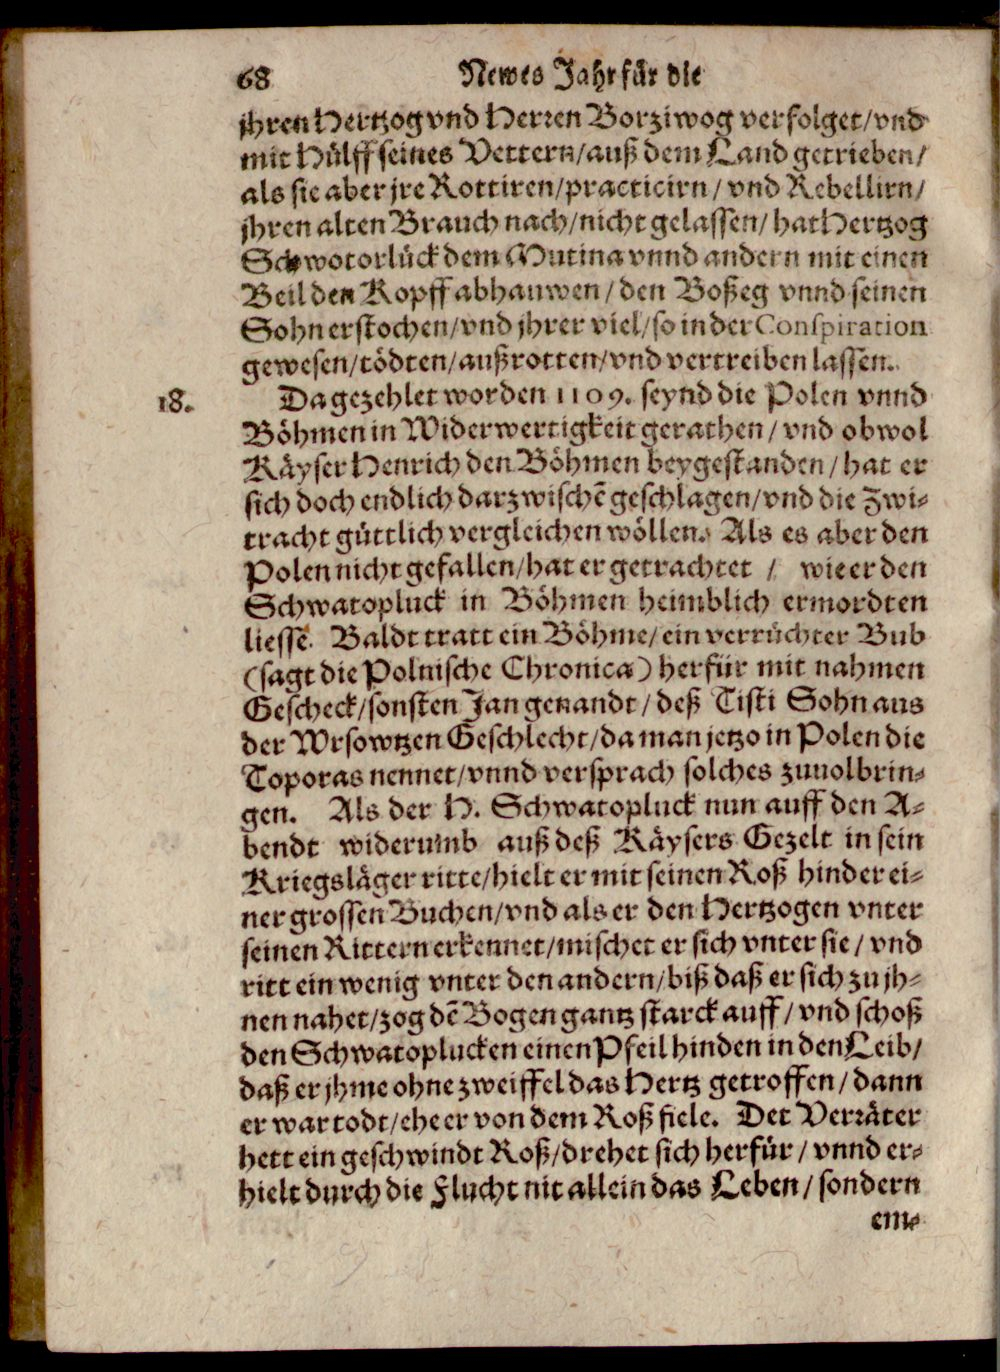 68 Newes Jahr für die
jhren Hertzog vnd Herren Borziwog verfolget/vnd
mit Hülff seines Vettern/auß dem Land getrieben/
als sie aber jre Rottiren/practicirn/vnd Rebellirn/
jhren alten Brauch nach/nicht gelassen/hat Hertzog
Schwotorlück dem Mutina vnnd andern mit einen
Beil den Kopff abhauwen/den Boßeg vnnd seinen
Sohn erstochen/vnd jhrer viel/so in der Conspiration
gewesen/tödten/außrotten/vnd vertreiben lassen.
18. Da gezehlet worden 1109. seynd die Polen vnnd
Böhmen in Widerwertigkeit gerathen/vnd obwol
Käyser Henrich den Böhmen beygestanden/hat er
sich doch endlich darzwischē geschlagen/vnd die Zwi-
tracht güttlich vergleichen wöllen. Als es aber den
Polen nicht gefallen/hat er getrachtet / wie er den
Schwatopluck in Böhmen heimblich ermordten
liesse. Baldt tratt ein Böhme/ein verrüchter Bub
(sagt die Polnische Chronica) herfür mit nahmen
Gescheck/sonsten Jan genandt/deß Tisti Sohn aus
der Wrsowtzen Geschlecht/da man jetzo in Polen die
Toporas nennet/vnnd versprach solches zuuolbrin-
gen. Als der H. Schwatopluck nun auff den A-
bendt widerumb auß deß Käysers Gezelt in sein
Kriegsläger ritte/hielt er mit seinen Roß hinder ei-
ner grossen Buchen/vnd als er den Hertzogen vnter
seinen Rittern erkennet/mischet er sich vnter sie/vnd
ritt ein wenig vnter den andern/biß daß er sich zu jh-
nen nahet/zog dē Bogen gantz starck auff/vnd schoß
den Schwatoplucken einen Pfeil hinden in den Leib/
daß er jhme ohne zweiffel das Hertz getroffen/dann
er war todt/ehe er von dem Roß fiele. Der Verräter
hett ein geschwindt Roß/drehet sich herfür/vnnd er-
hielt durch die Flucht nit allein das Leben/sondern
em-